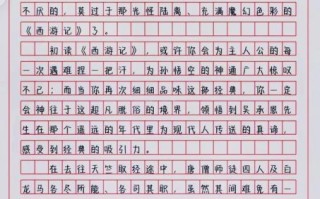 不厌的，莫过于那光怪陆离，充满魔幻色彩的
《西游记》了。
初读《西游记》，或许你会为主人公的每
一次遇难捏一把汗，为孙悟空的神通广大惊叹
不已；而当你再次细细品味这部经典，你一定
会神往于这超凡脱俗的境界，领悟到吴承恩先
生在那个遥远的年代里为现代人传送的真谛，
感受到经典的吸引力。
在去往天竺取经途中，唐僧师徒四人及白
龙马各尽所能、各司其职，虽然其间难免有一